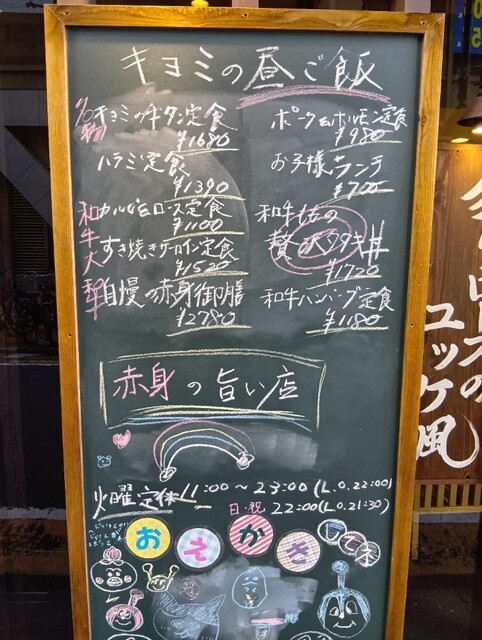 キヨミの昼ご飯
名物 キヨミの牛タン定食
¥1680
ハラミ定食
¥1390
和牛
カルビ&ロース定食
¥1100
すき焼きサーロイン定食
¥1520
自慢の赤身御膳
¥2780
ポーク&ホルモン定食
¥980
お子様ランチ
¥700
和牛
贅沢タタキ丼
¥1720
和牛ハンバーグ定食
¥1180
赤身の旨い店
火曜定休!! 11:00〜23:00(L.O.22:00)
日・祝 22:00(L.O.21:30)
おえかき
してネ
ユッケ風